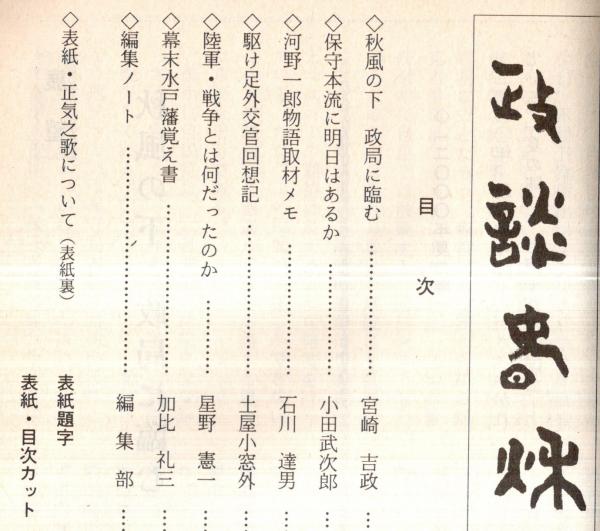 政談春秋
目次
◇秋風の下 政局に臨む ………………… 宮崎 吉政 …
◇保守本流に明日はあるか ………………… 小田武次郎 …
◇河野一郎物語取材メモ ………………… 石川 達男 …
◇駆け足外交官回想記 ………………… 土屋小窓外 …
◇陸軍・戦争とは何だったのか ………………… 星野 憲一 …
◇幕末水戸藩覚え書 ………………… 加比 礼三 …
◇編集ノート ………………… 編集部 …
◇表紙・正気之歌について（表紙裏）
表紙題字
表紙・目次カット